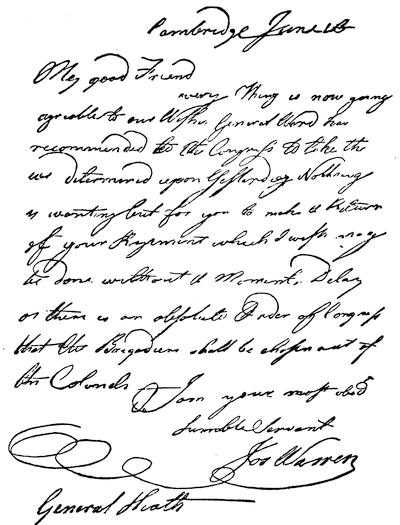 Cambridge June 16
My good Friend
every Thing is now going
agreable to our Wishes General Ward has
recommended to the Congress to take the
we determined upon Yesterday Nothing
is wanting but for you to make a Return
of your Regiment which I wish may
be done without a Moments Delay
as there is an absolute Order of Congress
that the Brigadiers shall be chosen out of
the Colonels
I am your most obed
humble Servant
Jos Warren
General Heath